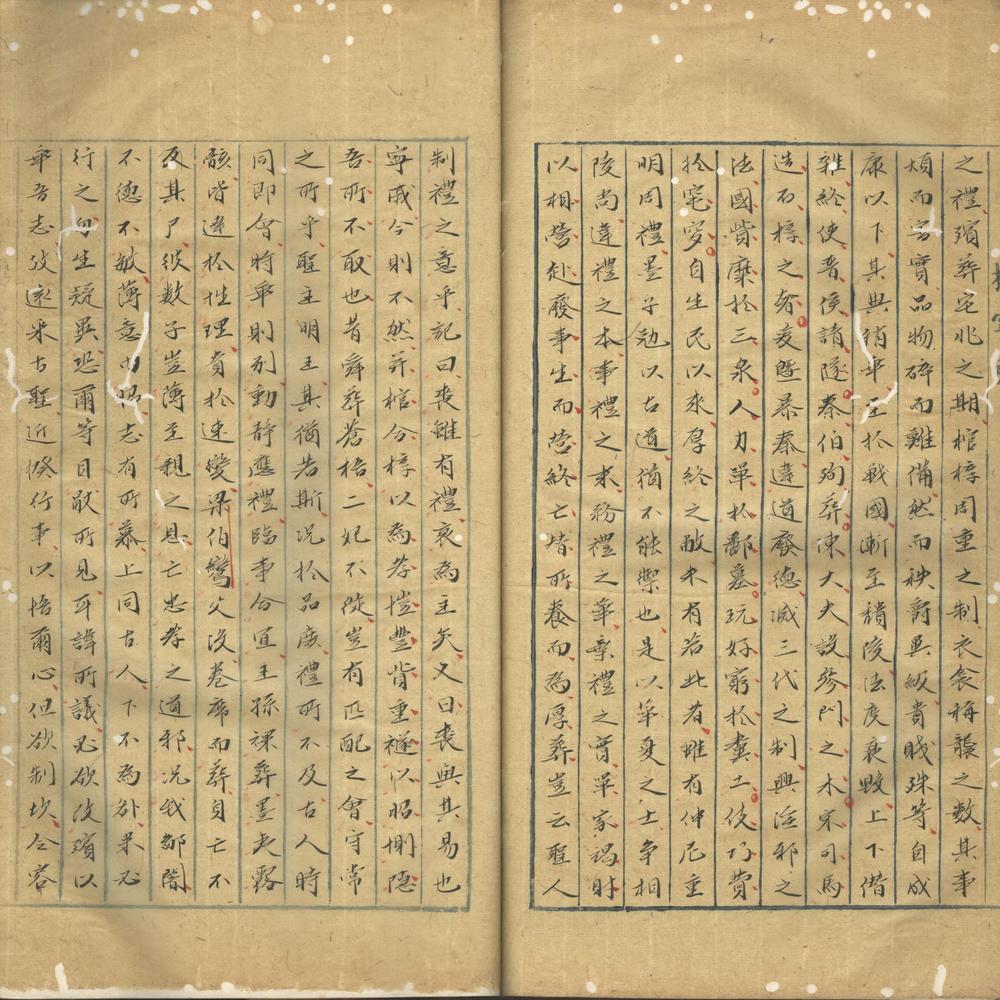 之禮殯葬宅兆之期棺椁周重之制衣衾稱襲之數其事
煩而害實品物碎而難備然而秩爵異級貴賤殊等自成
康以下其典稍乖至於戰國漸至穨陵法度衰毀上下僭
雜終使晉侯請隧秦伯殉葬陳大夫設參門之木宋司馬
造石椁之奢爰暨暴秦違道廢德滅三代之制興淫邪之
法國貲糜於三泉人力單於酈墓玩好窮於糞土伎巧費
於窀穸自生民以來厚終之敝未有若此者雖有仲尼重
明周禮墨子勉以古道猶不能禦也是以華夏之士爭相
陵尚違禮之本事禮之末務禮之華棄禮之實單家竭財
以相營赴廢事生而營終亡替所養而為厚葬豈云聖人
制禮之意乎記曰喪雖有禮哀為主矣又曰喪與其易也
寧戚今則不然并棺合椁以為孝愷豐貲重襚以昭惻隱
吾所不取也昔舜葬蒼梧二妃不從豈有匹配之會守常
之所乎聖主明王其猶若斯况於品庶禮所不及古人時
同即會時乖則別動靜應禮臨事合宜王孫裸葬墨夷露
骸皆達於性理貴於速變梁伯鸞父沒卷席而葬身亡不
反其尸彼數子豈薄至親之恩亡忠孝之道邪况我鄙闇
不德不敏薄意內昭志有所慕上同古人下不為咎果必
行之勿生疑異恐爾等目猒所見耳諱所議必欲改殯以
乖吾志故遠采古聖近揆行事以悟爾心但欲制坎令容